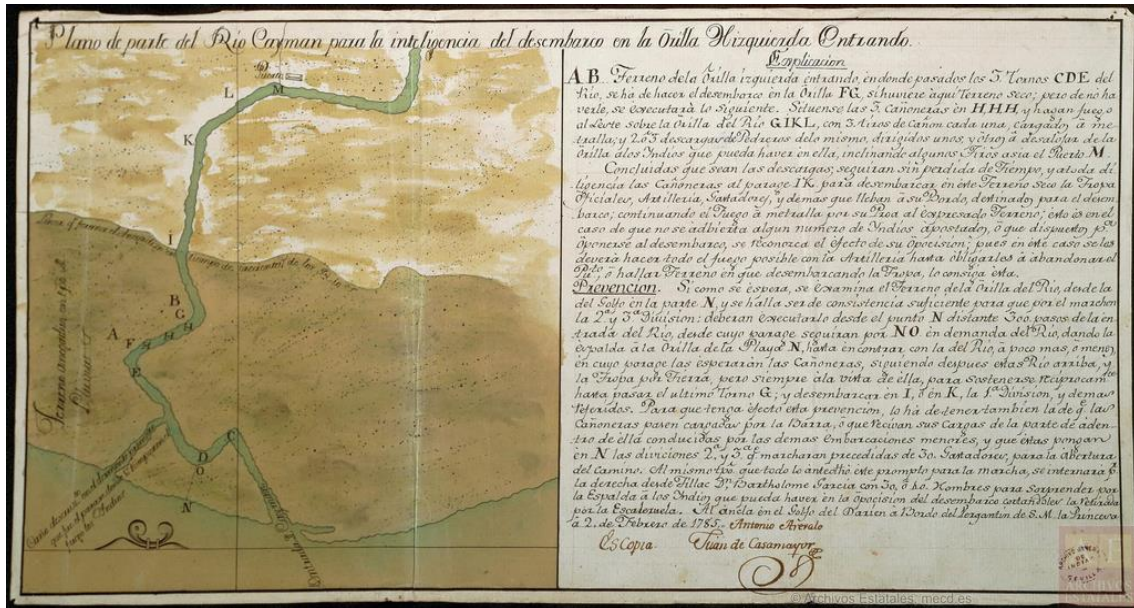 Plano de parte del Rio Cayman para la inteligencia del desembarco en la Orilla Yizquierda Entrando.
Explicacion
A.B. Terreno dela Orilla izquierda entrando, en donde pasados los 3. Tornos CDE del
Rio, se ha de hacer el desembarco en la Orilla FG, si huviere aqui Terreno seco; pero de no ha
verlo, se executará lo siguiente. Situense las 3. Cañoneras en HHH, y hagan fuego
al Leste sobre la Orilla del Rio GIKL, con 3 tiros de Cañon cada una, cargados á me-
tralla; y 2 ó 3 descargas de Pedreros delo mismo, dirigidos unos, y otros á desalojar de la
Orilla álos Indios que pueda haver en ella, inclinando algunos Tiros asia el Puerto M.
Concluidas que sean las descargas; seguiran sin perdida de Tiempo, y atoda di-
ligencia las Cañoneras al parage IK para desembarcar en este Terreno Seco la Tropa
Oficiales, Artilleria, Gastadores, y demas que lleban á su Bordo, destinados para el desem-
barco; continuando el Fuego á metralla por su Proa al expresado Terreno; esto es en el
caso de que no se adbierta algun numero de Indios apostados, ó que dispuestos pª
oponerse al desembarco, se reconozca el efecto de su Oposicion; pues en este caso se les
deverá hacer todo el fuego posible con la Artilleria hasta obligarles á abandonar el
Pto, ó hallar Terreno en que desembarcando la Tropa, lo consiga esta.
Prevencion. Si como se espera, se examina el Terreno dela Orilla del Rio, desde la
del Golfo en la parte N, y se halla ser de consistencia suficiente para que por el marchen
la 2ª y 3ª Division: deberan executarlo desde el punto N distante 300 pasos de la en-
trada del Rio, desde cuyo parage seguiran por NO en demanda del Rio, dando la
espalda á la Orilla de la Playa N, hasta encontrar, con la del Rio, á poco mas, ó menos,
en cuyo parage las esperarán las Cañoneras, siguiendo despues estas Rio arriba, y
la Tropa por Tierra, pero siempre ála vista de ella, para sostenerse reciprocamte
hasta pasar el ultimo Torno G; y desembarcar en I, ó en K, la 1ª Division, y demas
referidos. Para que tenga efecto esta prevencion, lo ha de tener tambien la de q. las
Cañoneras paren cargadas por la Barra, ó que recivan sus Cargas de la parte de aden-
tro de ellá conducidas por las demas Embarcaciones menores, y que estas pongan
en N las diviciones 2ª y 3ª q. marcharan precedidas de 30. Gastadores, para la abertura
del Camino. Al mismo tpo. que todo lo antedho esté prompto para la marcha, se internará pr
la derecha desde Tillac Dn Bartholome Garcia con 30, ó 40. Hombres para sorprender por
la Espalda á los Indios que pueda haver en la Oposicion del desembarco cortandoles la retirada
por la Escaderuela. Al áncla en el Golfo del Darien á Bordo del Vergantin de S.M. la Princesa
á 2. de Febrero de 1785. Antonio Arevalo
Es Copia. Juan de Casamayor
L
M
K
I
B
G
H
H
H
A
F
E
C
D
O
N
Terreno anegado en tpo. de Lluvias
Entrada
ARCHIVO GENERAL DE INDIAS SEVILLA
ARCHIVOS ESTATALES
© Archivos Estatales, mecd.es